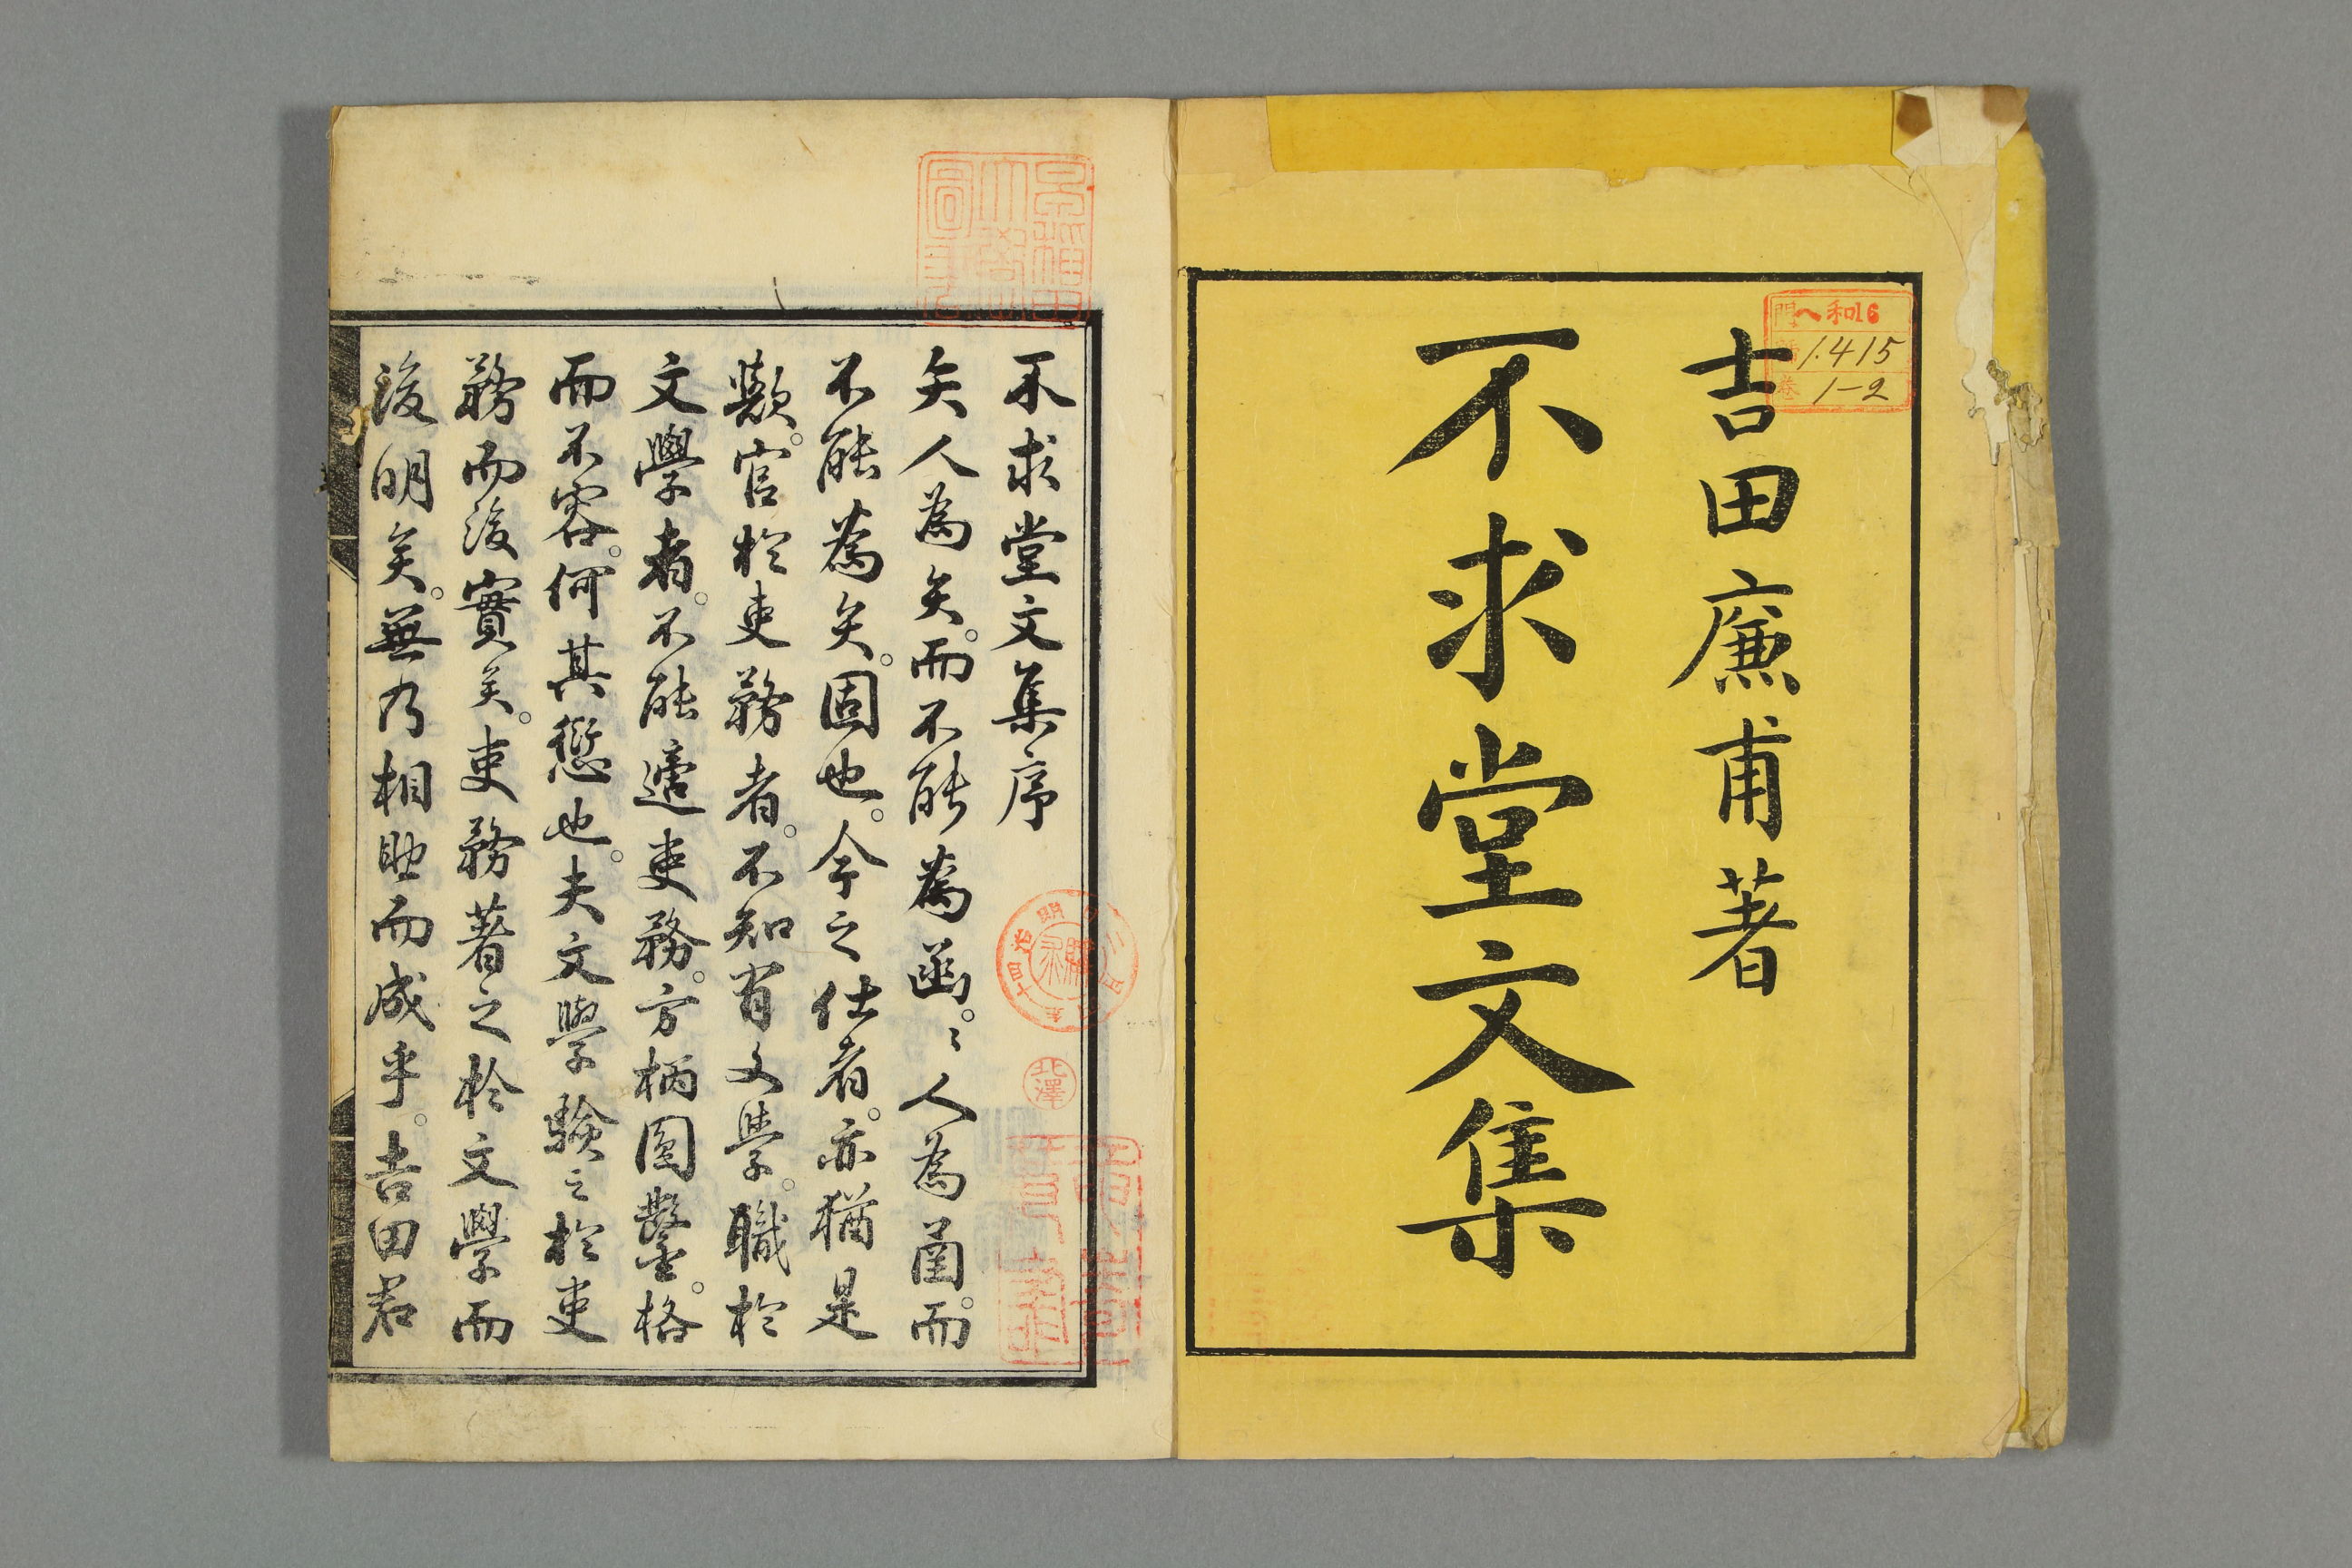 門へ和16
號1.415
卷1-2
吉田廉甫著
不求堂文集
不求堂文集序
矢人為矢。而不能為函。〻人為函。而
不能為矢。固也。今之仕者。亦猶是
歟。官於吏務者。不知有文學。職於
文學者。不能適吏務。方枘圓鑿。格
而不容。何其愆也。夫文學驗之於吏
務而後實矣。吏務著之於文學而
後明矣。無乃相助而成乎。吉田君
早稻田
大學
圖書
北澤